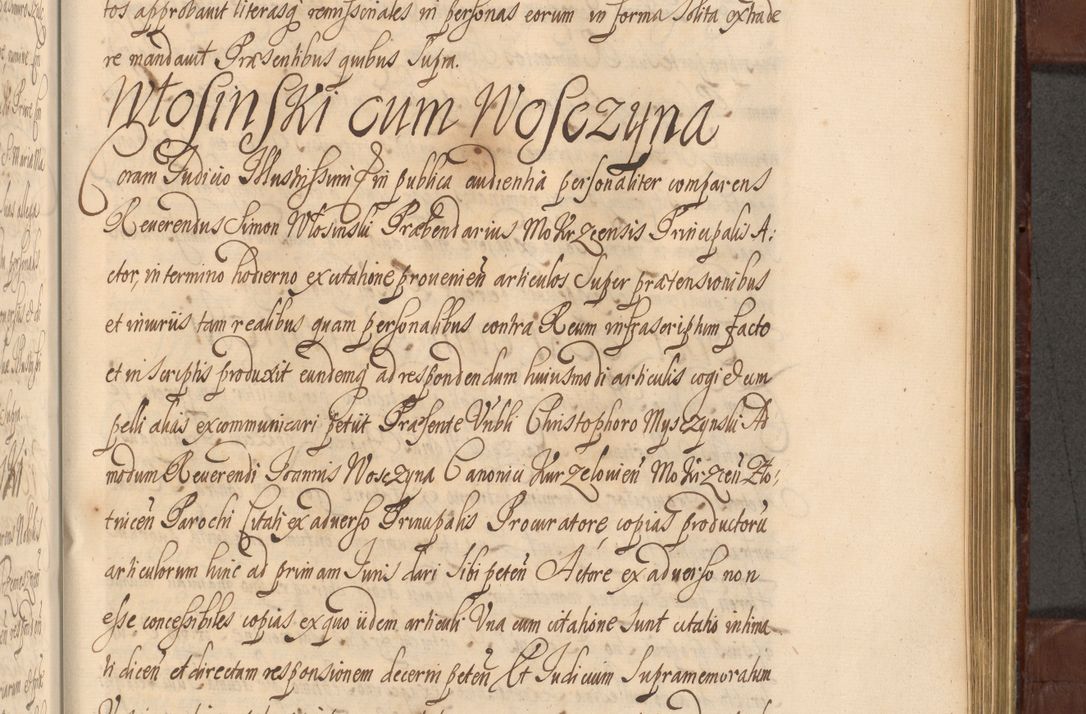 tos approbavit literasq remissoriales in personas eorum in forma solita extrade
re mandavit Præsentibus quibus supra.
Włosinski cum Wosczyna
Coram Iudicio Illustrissimi &c in publica audientia personaliter comparens
Reverendus Simon Włosinski Præbendarius Mokrzcensis Principalis A:
ctor, in termino hodierno ex citatione provenien articulos super prætensionibus
et iniuriis tam realibus quam personalibus contra Reum infrascriptum facto
et in scriptis produxit eundemq ad respondendum huiusmodi articulis cogi et com
pelli alias excommunicari petiit Præsente Nbli Christophoro Mysczynski Ad
modum Reverendi Ioannis Wosczyna Canonici Kurzelovien Mokrzcen Zło:
tnicen Parochi Citati ex adverso Principalis Procuratore, copias productorū
articulorum hinc ad primam Iuris dari sibi peten Actore ex adverso non
esse concessibiles copias ex quo iidem articuli Una cum citatione sunt citato intima
ti dicen et directam responsionem decerni peten Et Iudicium supramemoratum